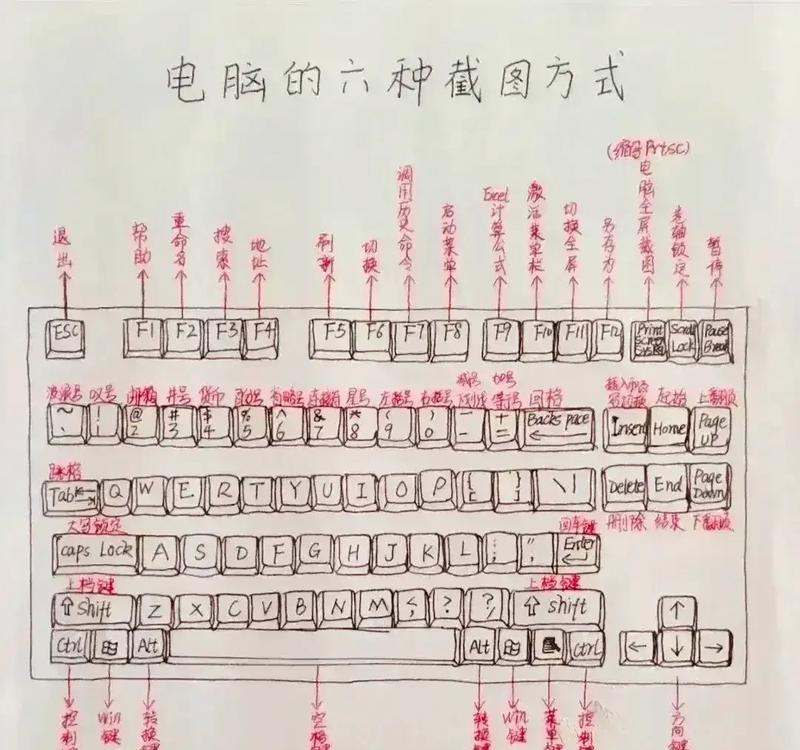 电脑的六种截图方式
(缩写Prtsc)
退出 帮助 重命名 搜索 地址 刷新 切换 调用历史命令 启动菜单 Excel计算公式 激活菜单栏 切换全屏 另存为 电脑全屏截图 暂停
ESC F1 F2 F3 F4 F5 F6 F7 F8 F9 F10 F11 F12 Print Scroll Lock Pause Break
波浪号 叹号 邮箱 井号 货币 省略号 连接符 星号 左括号 右括号 减号 加号 等号 回格 起始 上翻页
~ ! @ # $ % ^ & * ( ) - + Backspace Insert Home Page UP
` 2 3 4 5 6 7 8 9 0 - =
跳格
Tab Q W E R T Y U I O P { } \ | Delete End Page Down
[ ]
删除 结束 下翻页
大写锁定 回车键
caps Lock A S D F G H J K L : ; " , Enter
上档键 上档键
⇧ Shift Z X C V B N M < , ? ? / ⇧ shift ↑
Ctrl Alt Alt Ctrl ← ↓ →
控制 Win键 转换键 空格键 转换键 Win键 菜单键 控制 方向键